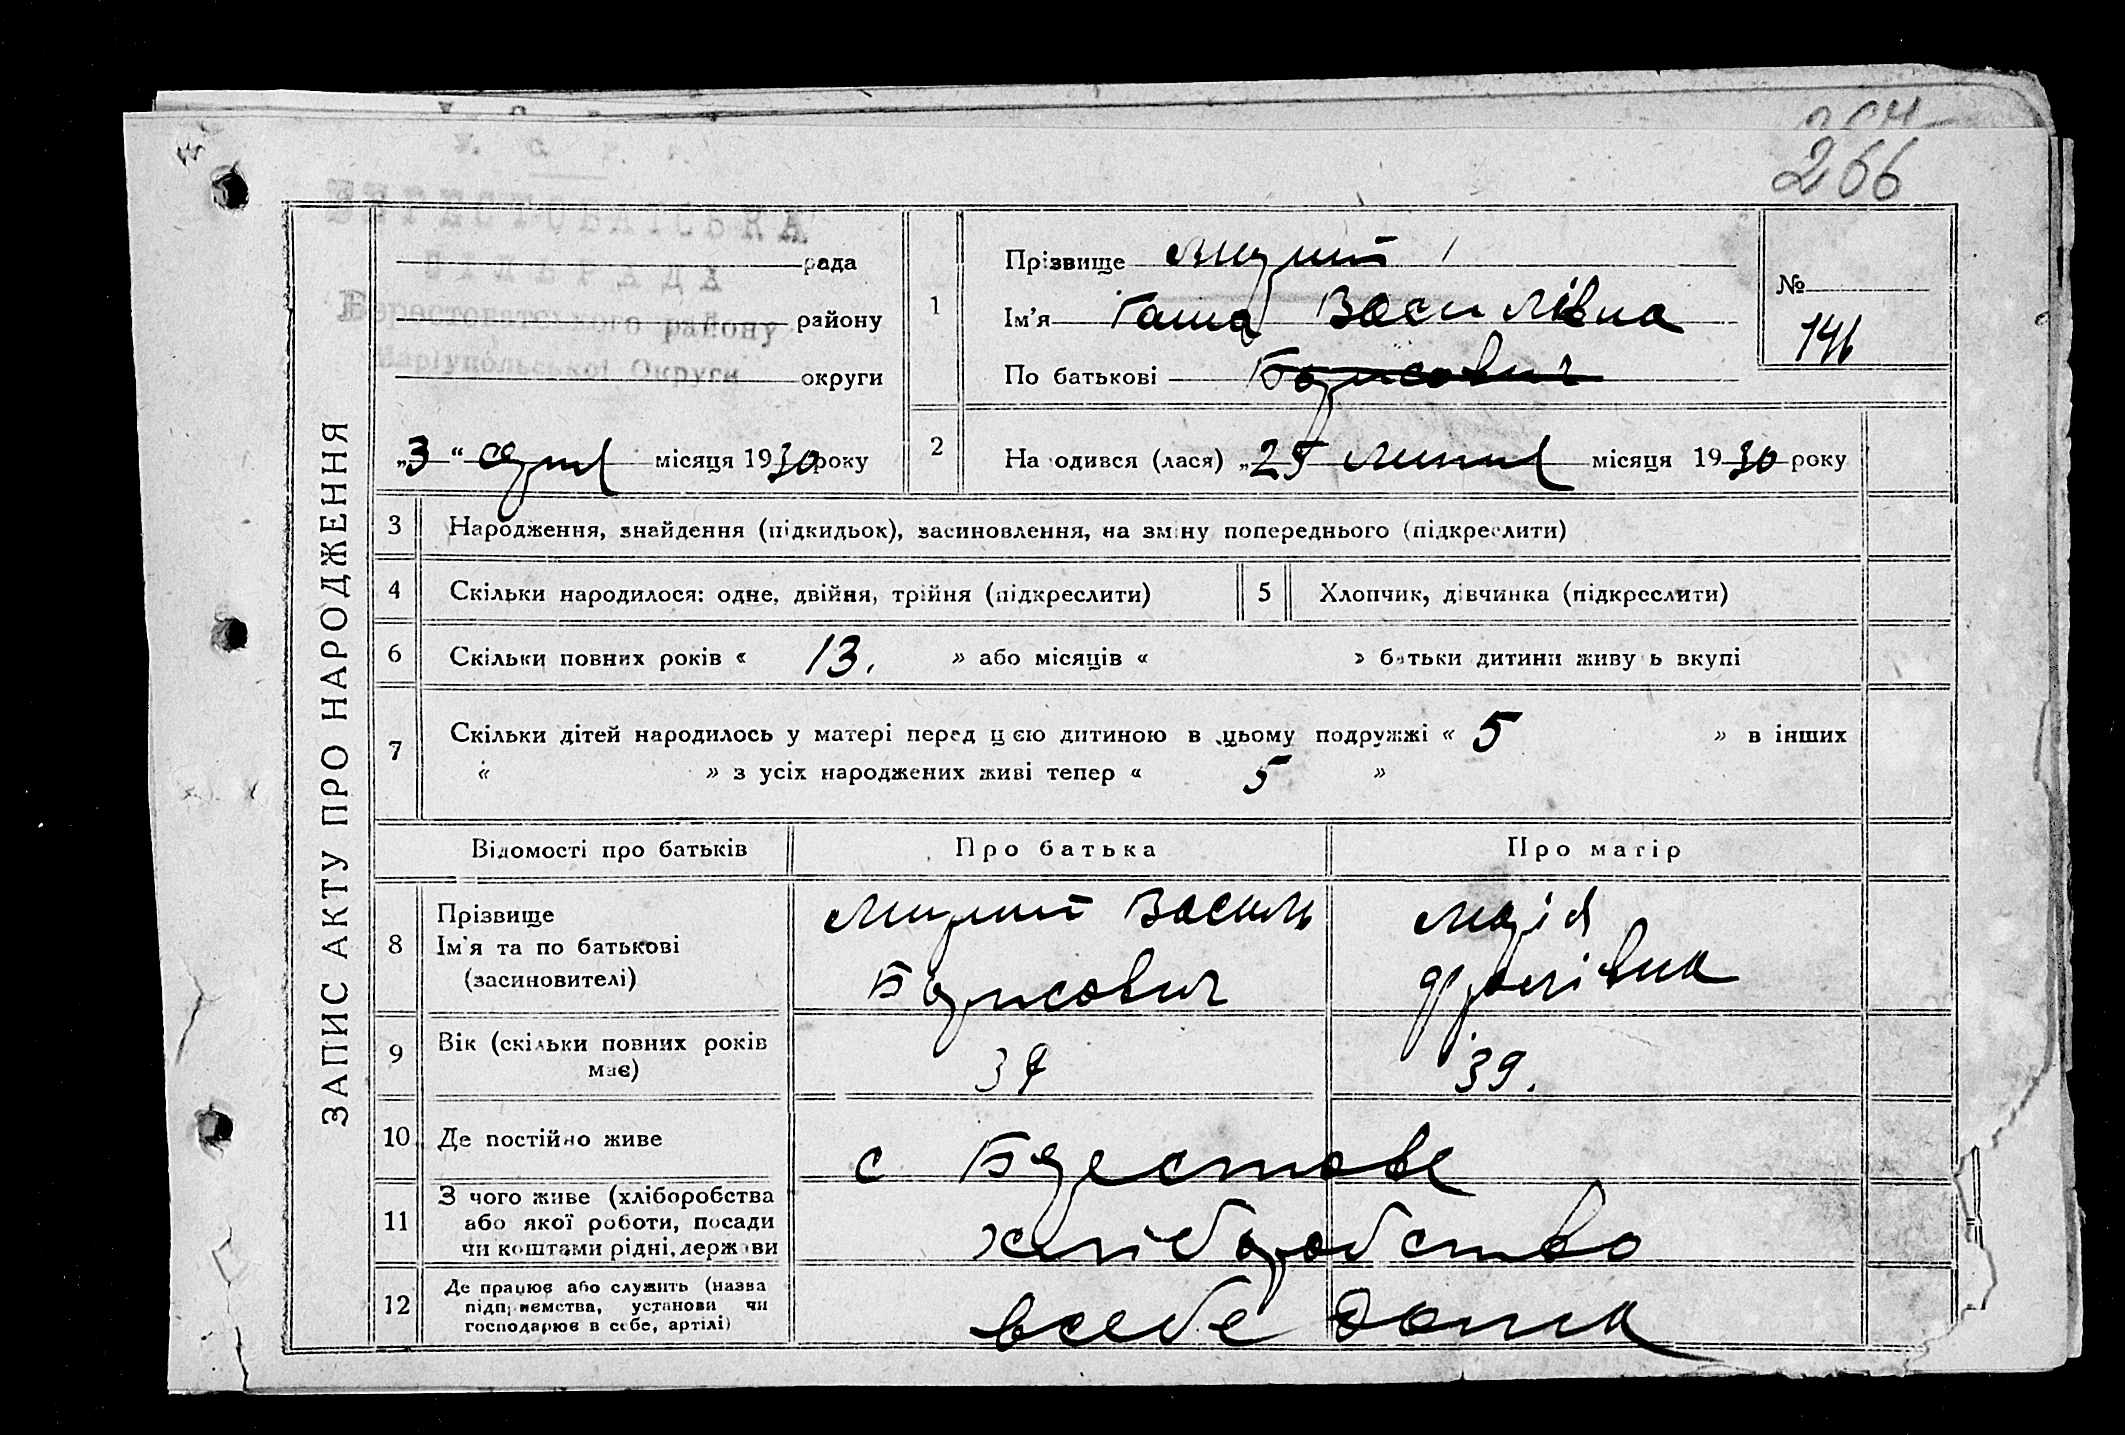 266
У. С. Р. Р.
БЕРЕСТОВАТСЬКА
СІЛЬРАДА
Берестоватського району
Маріупольської Округи
рада
району
округи
„3“ серпня місяця 1930 року
ЗАПИС АКТУ ПРО НАРОДЖЕННЯ
1
Прізвище
Ім'я Ганна Василівна
По батькові Борисович
№
146
2
Народився (лася) „25 липня місяця 1930 року
3 Народження, знайдення (підкидьок), засиновлення, на зміну попереднього (підкреслити)
4 Скільки народилося: одне, двійня, трійня (підкреслити)
5 Хлопчик, дівчинка (підкреслити)
6 Скільки повних років « 13. » або місяців « » батьки дитини живуть вкупі
7 Скільки дітей народилось у матері перед цією дитиною в цьому подружжі « 5 » в інших
« » з усіх народжених живі тепер « 5 »
Відомості про батьків
Про батька
Про матір
8 Прізвище
Ім'я та по батькові
(засиновителі)
Василь
Борисович
Марія
9 Вік (скільки повних років
має)
39
39.
10 Де постійно живе
с Берестове
11 З чого живе (хліборобства
або якої роботи, посади
чи коштами рідні, держави
хліборобство
12 Де працює або служить (назва
підприємства, установи чи
господарює в себе, артілі)
всебе дома